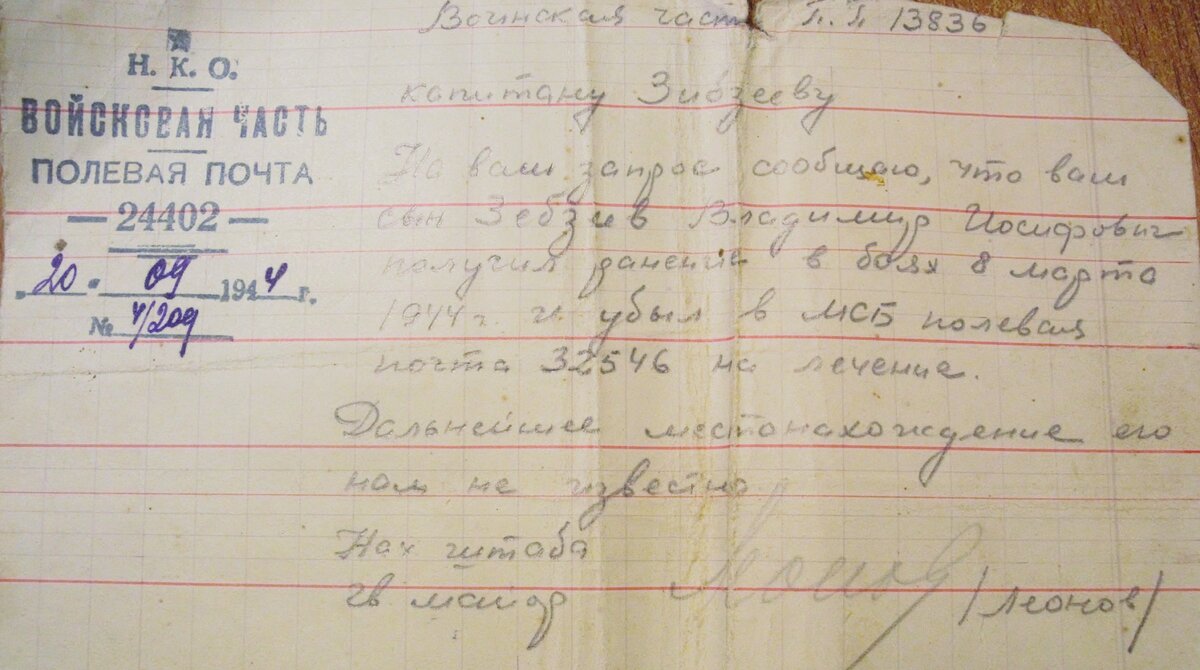 Н. К. О.
ВОЙСКОВАЯ ЧАСТЬ
ПОЛЕВАЯ ПОЧТА
— 24402 —
20. 09 1944 г.
№ 4/209
Воинская часть П. П 13836
капитану Зибзееву
На ваш запрос сообщаю, что ваш
сын Зебзиев Владимир Иосифович
получил ранение в боях 8 марта
1944 г. и убыл в МСБ полевая
почта 32546 на лечение.
Дальнейшее местонахождение его
нам не известно.
Нач штаба
гв майор /Леонов/